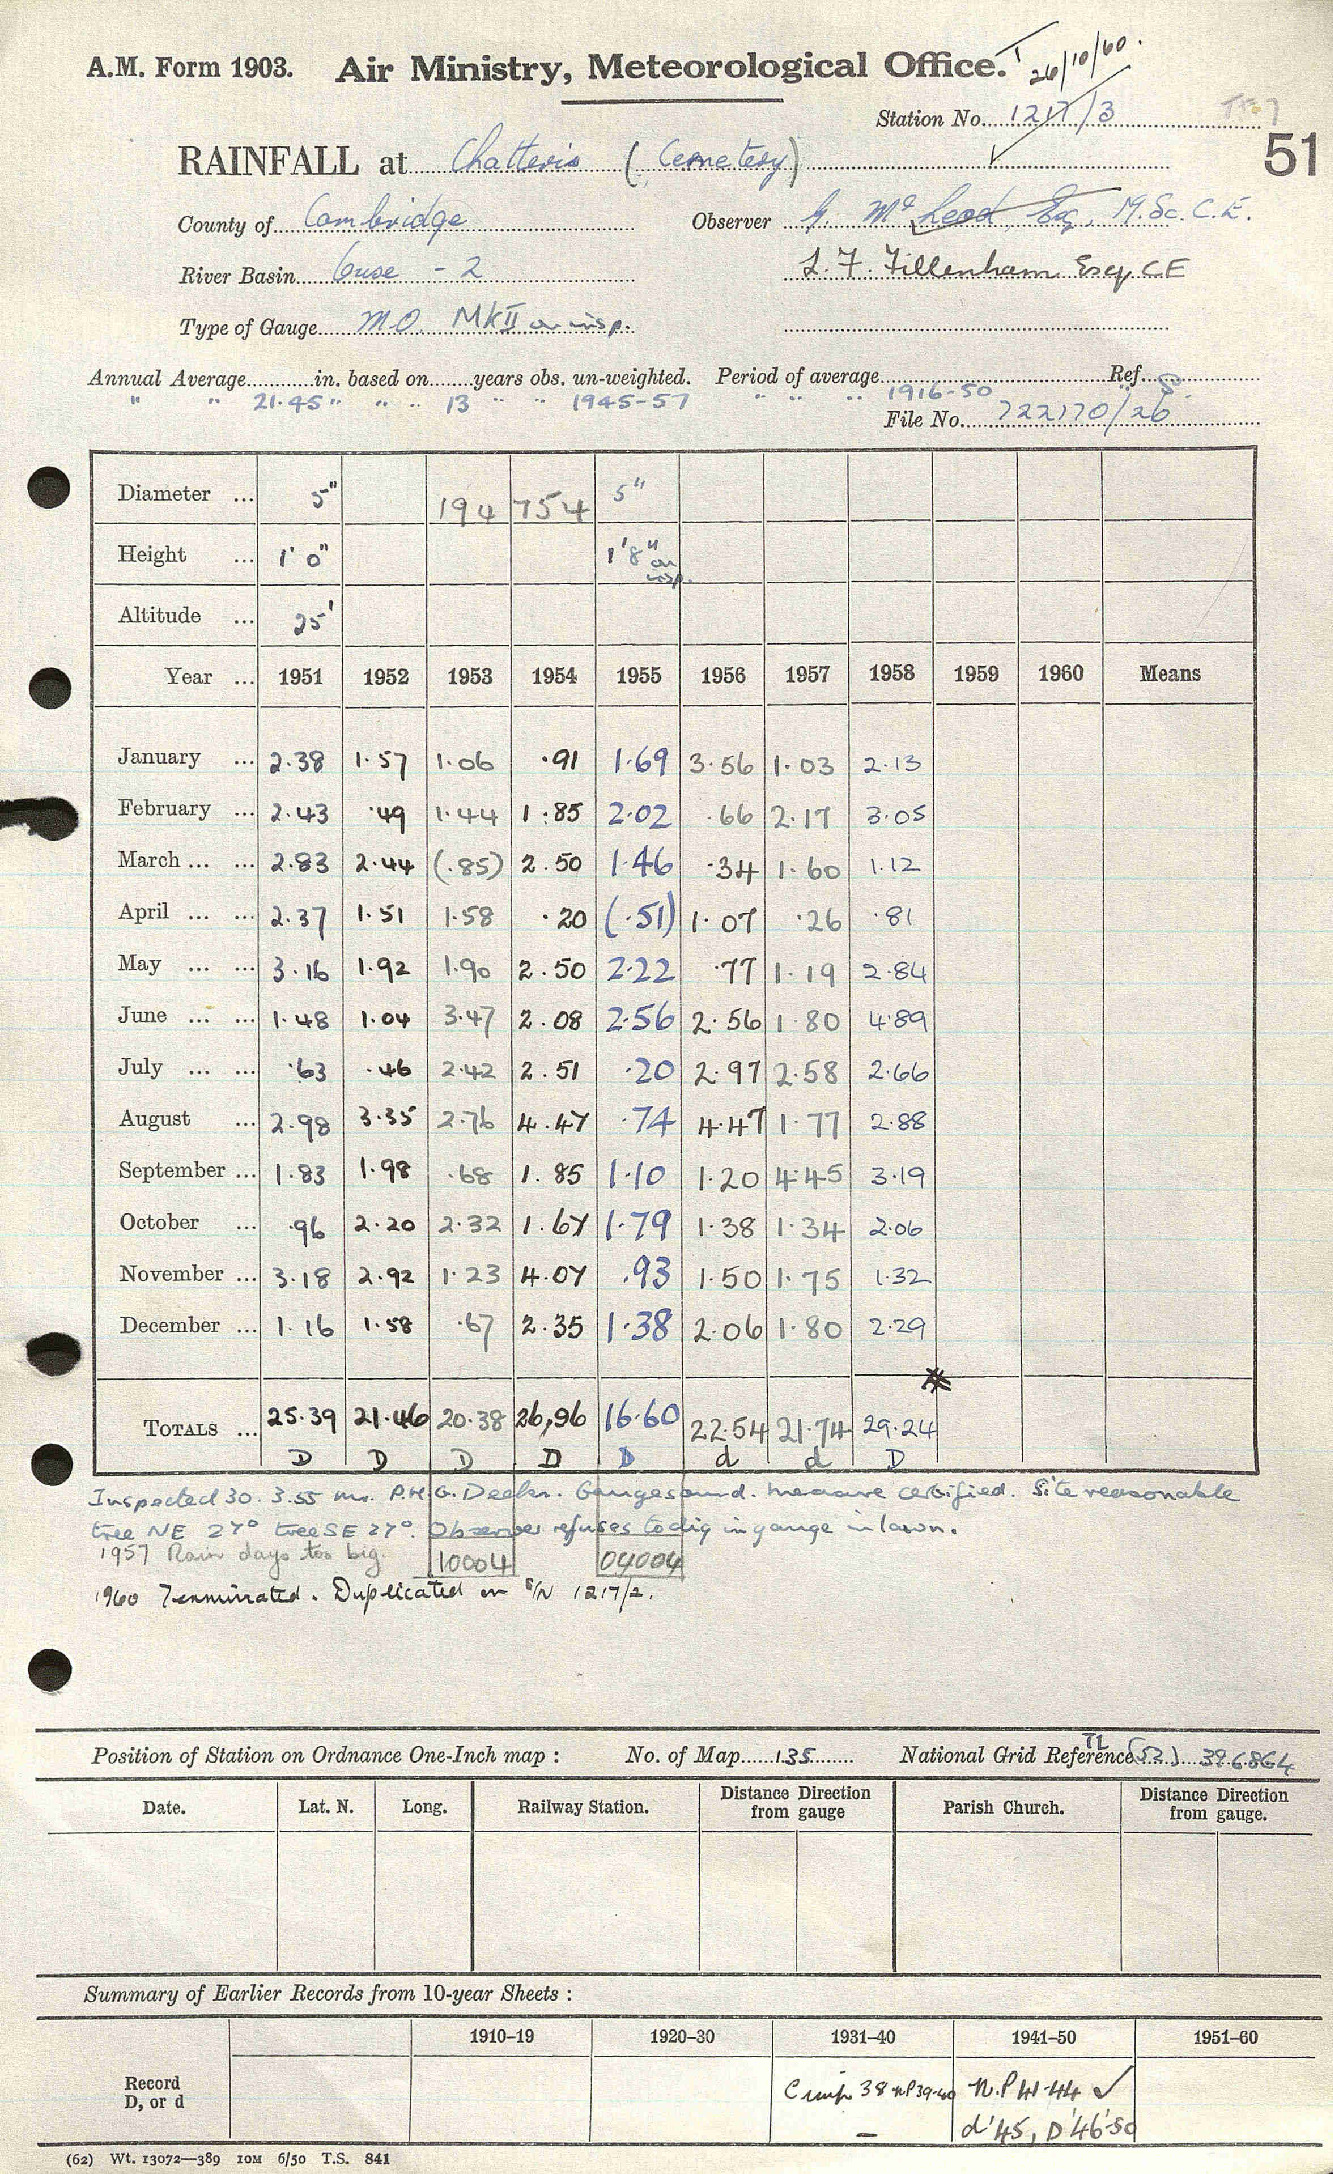 A.M. Form 1903. Air Ministry, Meteorological Office. T 26/10/60.
Station No. 1217/3
51
RAINFALL at Chatteris (Cemetery)
County of Cambridge Observer G. McLeod Esq, M.Sc. C.E.
River Basin Ouse - 2 L. F. Fillenham Esq CE
Type of Gauge M.O. MkII on insp.
Annual Average in. based on years obs. un-weighted. Period of average Ref.
" " 21.45 " " " 13 " " 1945-57 " " " 1916-50
File No. 722170/26
Diameter ... 5" 194 754 5"
Height ... 1' 0" 1'8" on insp.
Altitude ... 25'
Year ... 1951 1952 1953 1954 1955 1956 1957 1958 1959 1960 Means
January ... 2.38 1.57 1.06 .91 1.69 3.56 1.03 2.13
February ... 2.43 .49 1.44 1.85 2.02 .66 2.17 3.05
March ... ... 2.83 2.44 (.85) 2.50 1.46 .34 1.60 1.12
April ... ... 2.37 1.51 1.58 .20 (.51) 1.07 .26 .81
May ... ... 3.16 1.92 1.90 2.50 2.22 .77 1.19 2.84
June ... ... 1.48 1.04 3.47 2.08 2.56 2.56 1.80 4.89
July ... ... .63 .46 2.42 2.51 .20 2.97 2.58 2.66
August ... 2.98 3.35 2.76 4.47 .74 4.47 1.77 2.88
September ... 1.83 1.98 .68 1.85 1.10 1.20 4.45 3.19
October ... .96 2.20 2.32 1.67 1.79 1.38 1.34 2.06
November ... 3.18 2.92 1.23 4.07 .93 1.50 1.75 1.32
December ... 1.16 1.58 .67 2.35 1.38 2.06 1.80 2.29
TOTALS ... 25.39 21.46 20.38 26,96 16.60 22.54 21.74 29.24
D D D D D d d D
Inspected 30.3.55 Mr. P.H.G. Gauge sound. measure certified. Site reasonable
tree NE 27° tree SE 27°. Observer refuses to dig in gauge in lawn.
1957 Rain days too big. 10004 04004
1960 Terminated. Duplicated on S/N 1217/2.
Position of Station on Ordnance One-Inch map : No. of Map 135 National Grid Reference TL (52) 396864
Date. Lat. N. Long. Railway Station. Distance Direction from gauge Parish Church. Distance Direction from gauge.
Summary of Earlier Records from 10-year Sheets :
1910–19 1920–30 1931–40 1941–50 1951–60
Record D, or d 38 NP39-40 N.P 41-44 ✓
– d'45, D'46-50
(62) Wt. 13072—389 10M 6/50 T.S. 841